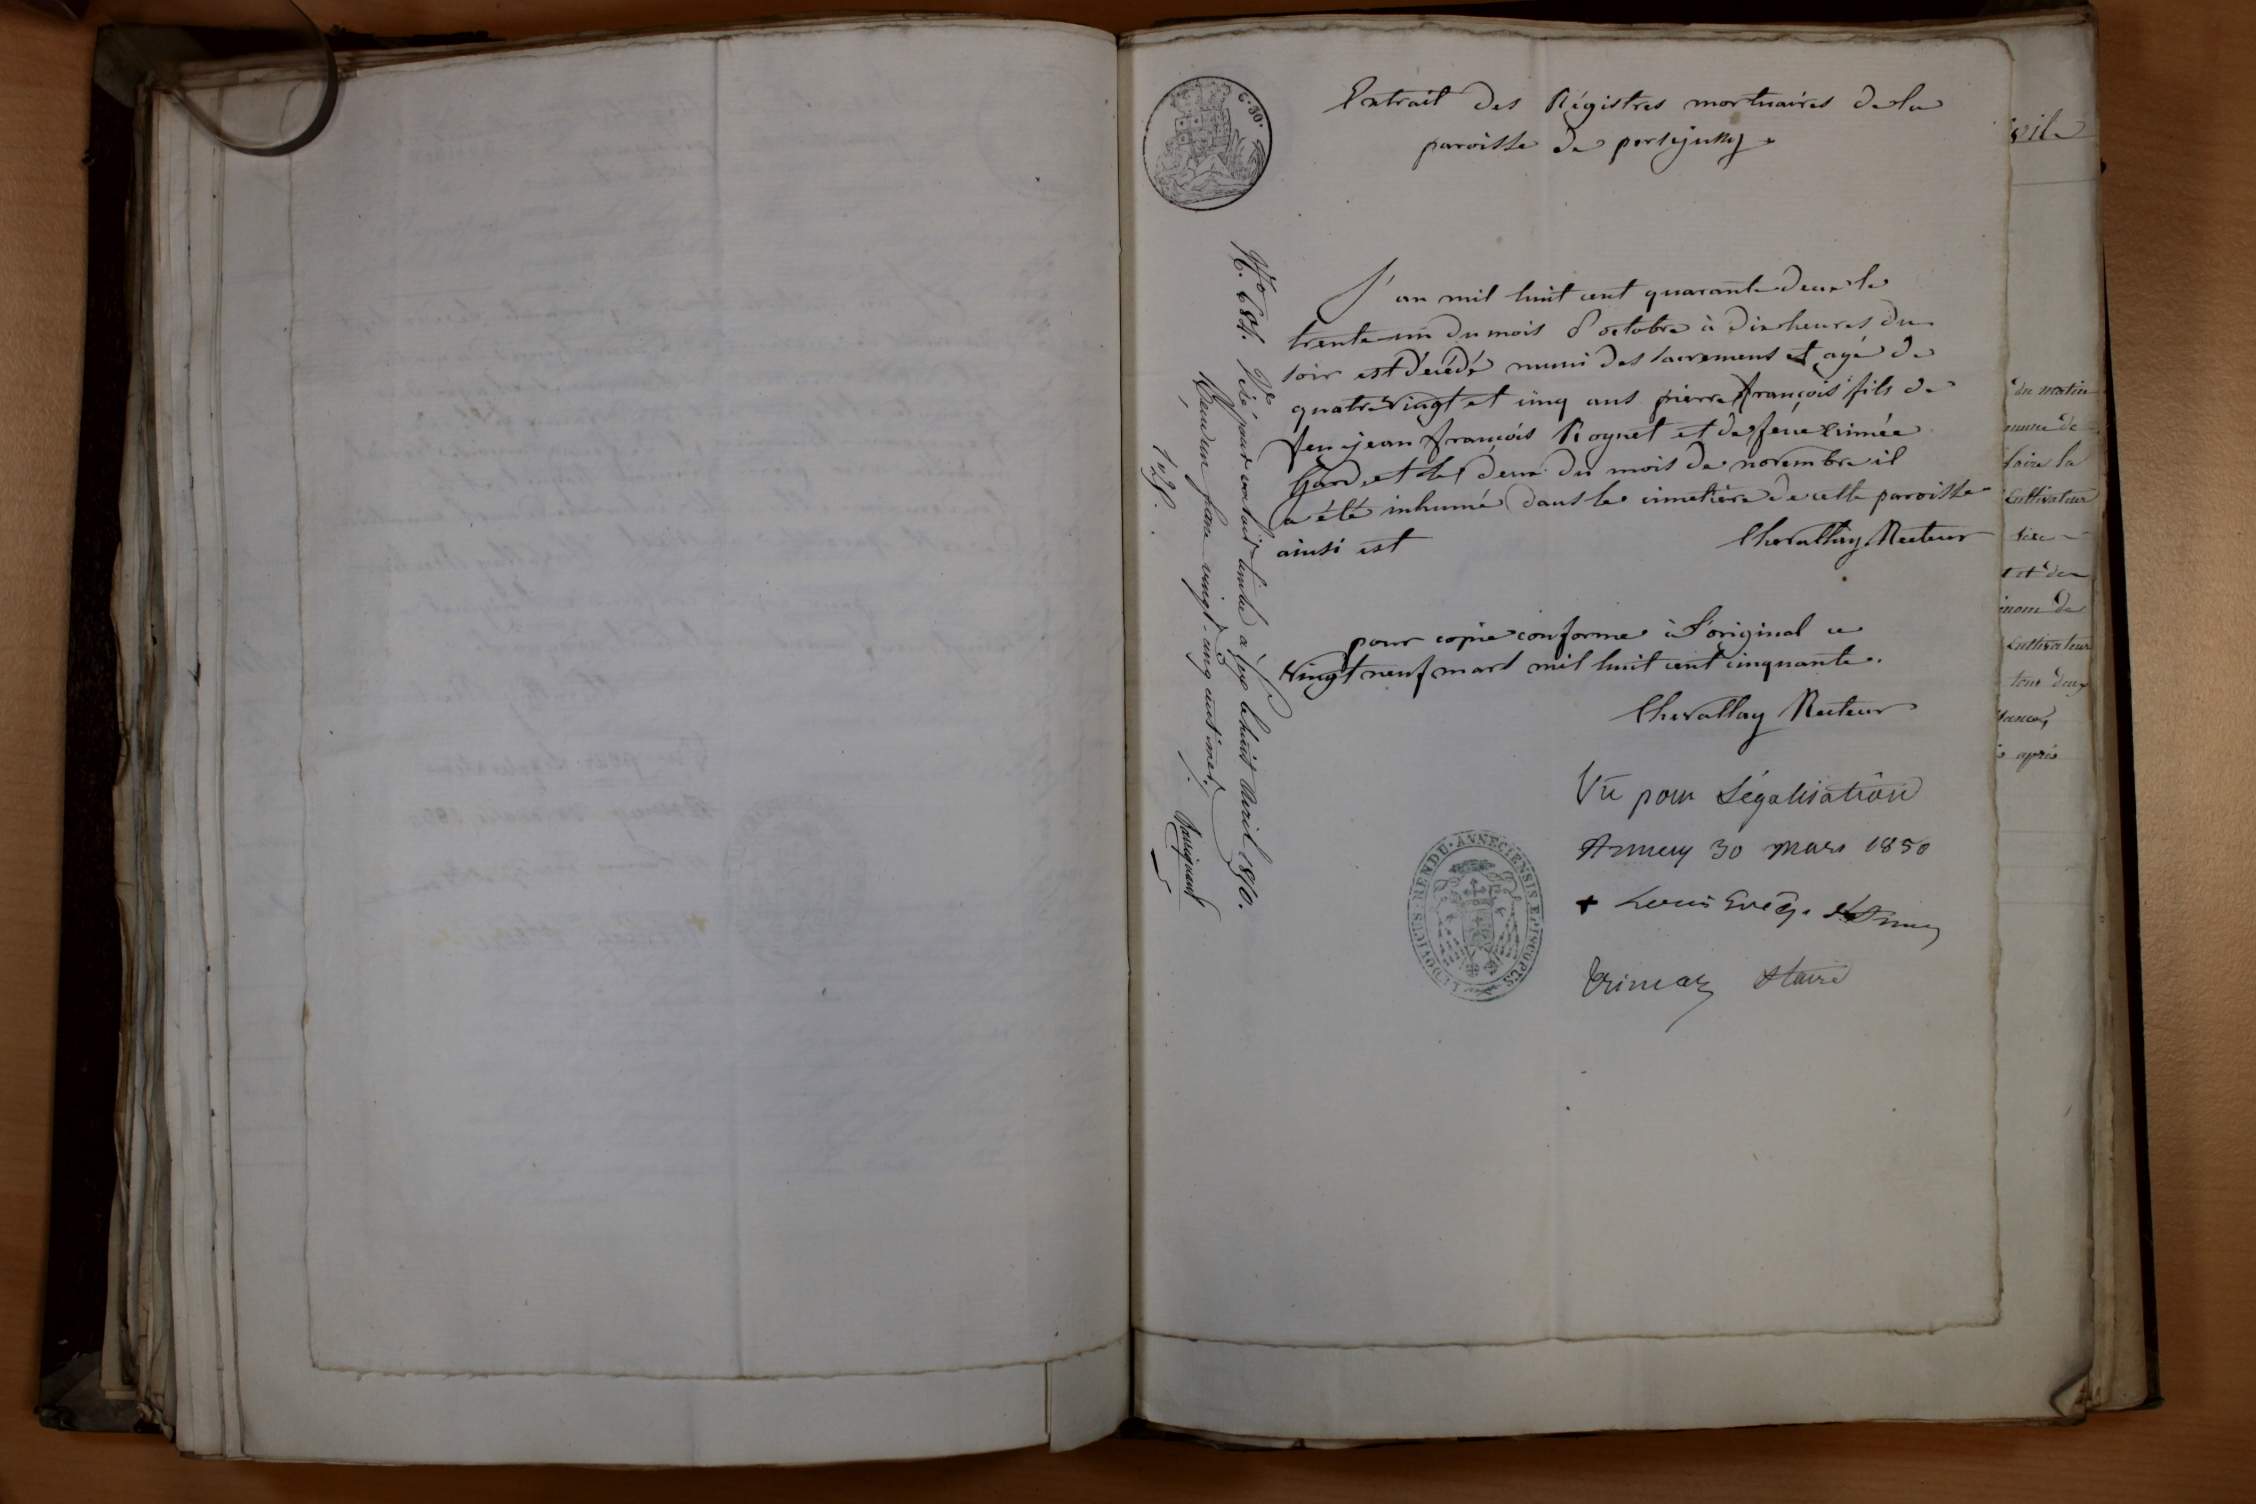 Extrait des Régistres mortuaires de la
paroisse de persejussy
C. 30.
L'an mil huit cent quarante deux le
trente-un du mois d'octobre à dix heures du
soir est décédé muni des sacremens et agé de
quatre vingt et cinq ans pierre françois fils de
feu jean françois Roynet et de feue
Gard, et le deux du mois de novembre il
a été inhumé dans le cimetière de cette paroisse
ainsi est Chevallay Recteur
pour copie conforme à l'original ce
vingt neuf mars mil huit cent cinquante.
Chevallay Recteur
Vu pour Légalisation
Annecy 30 mars 1850
+ Louis Evêq. d'Annecy
LUDOVICUS RENDU ANNECIENSIS EPISCOPUS
N. 684. Visé pour timbre à le huit Avril 1850.
vingt-cinq centimes
1 f. 25.
ivile
du matin
mune de
faire la
Cultivateur
et de
nom de
Cultivateur
tous deux
après